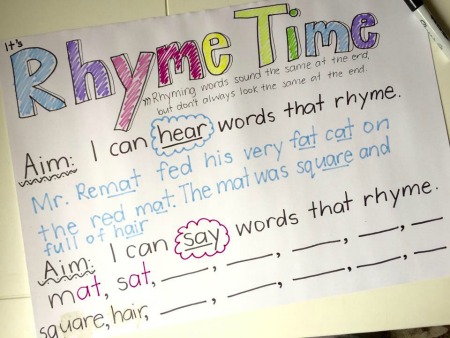 It's
Rhyme Time
Rhyming words sound the same at the end,
but don't always look the same at the end.
Aim: I can hear words that rhyme.
Mr. Remat fed his very fat cat on
the red mat. The mat was square and
full of hair
Aim: I can say words that rhyme.
mat, sat, __, __, __, __, __
square, hair, __, __, __, __, __